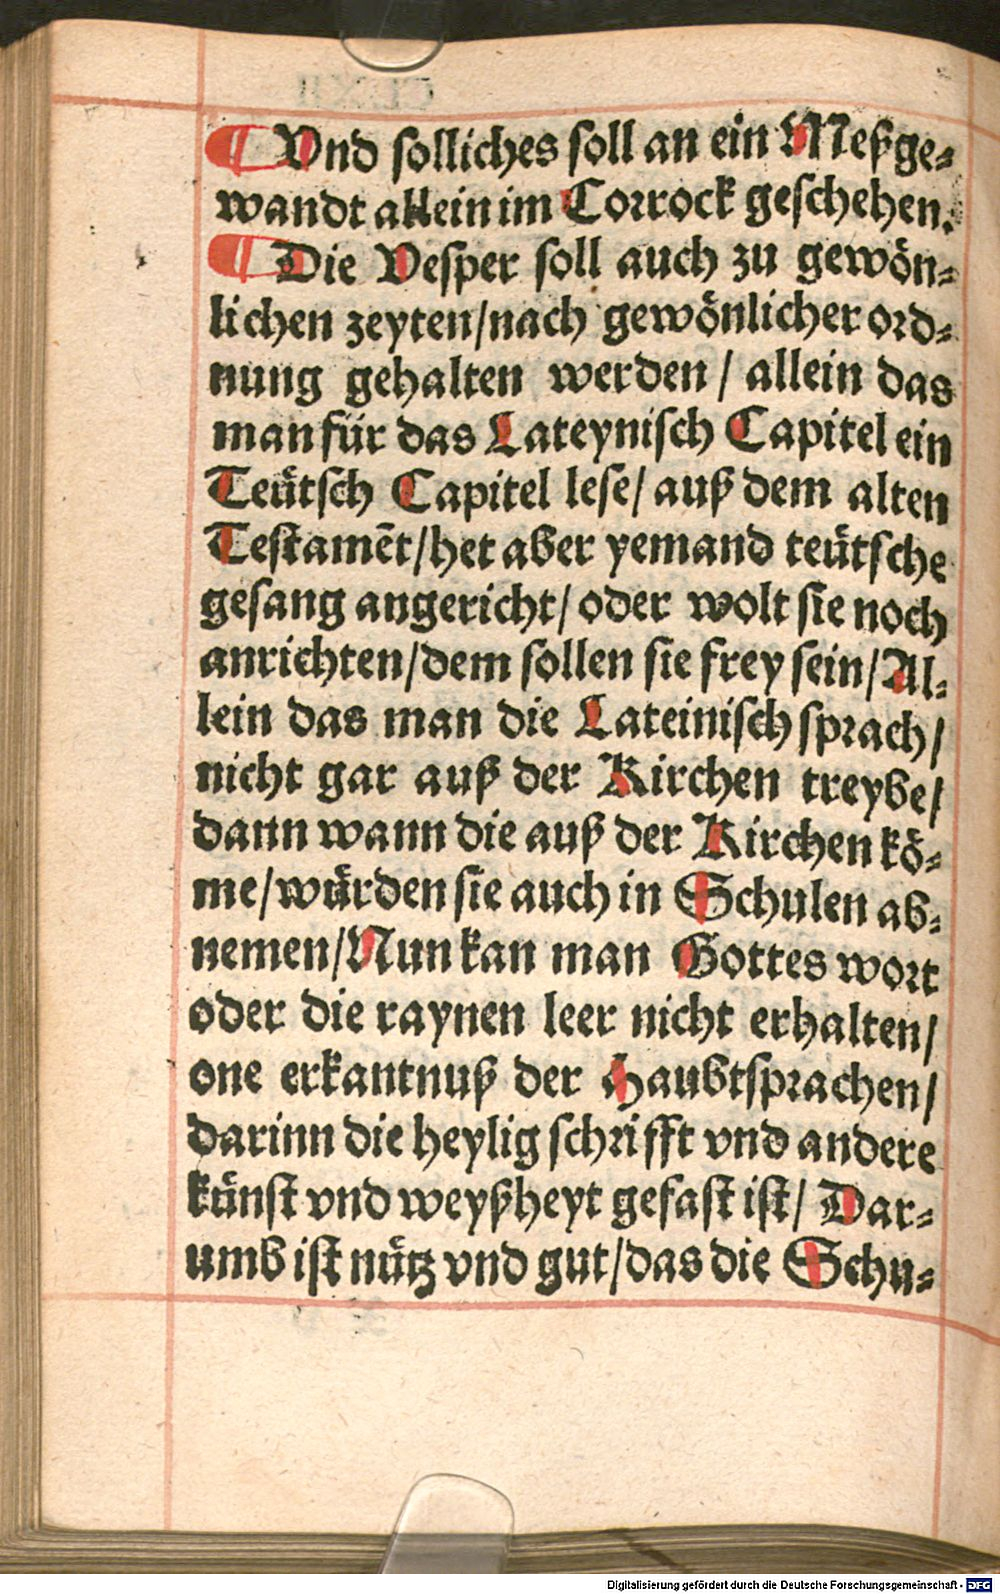 ¶ Vnd solliches soll an ein Meßge⸗
wandt allein im Corrock geschehen.
¶ Die Vesper soll auch zu gewoͤn⸗
lichen zeyten/nach gewoͤnlicher ord⸗
nung gehalten werden/ allein das
man für das Lateynisch Capitel ein
Teütsch Capitel lese/ auß dem alten
Testamēt/het aber yemand teütsche
gesang angericht/ oder wolt sie noch
anrichten/dem sollen sie frey sein/Al⸗
lein das man die Lateinisch sprach/
nicht gar auß der Kirchen treybe/
dann wann die auß der Kirchen kö⸗
me/würden sie auch in Schulen ab⸗
nemen/Nun kan man Gottes wort
oder die raynen leer nicht erhalten/
one erkantnuß der Haubtsprachen/
darinn die heylig schrifft vnd andere
künst vnd weyßheyt gefast ist/ Dar⸗
umb ist nütz vnd gut/das die Schu⸗
Digitalisierung gefördert durch die Deutsche Forschungsgemeinschaft - DFG